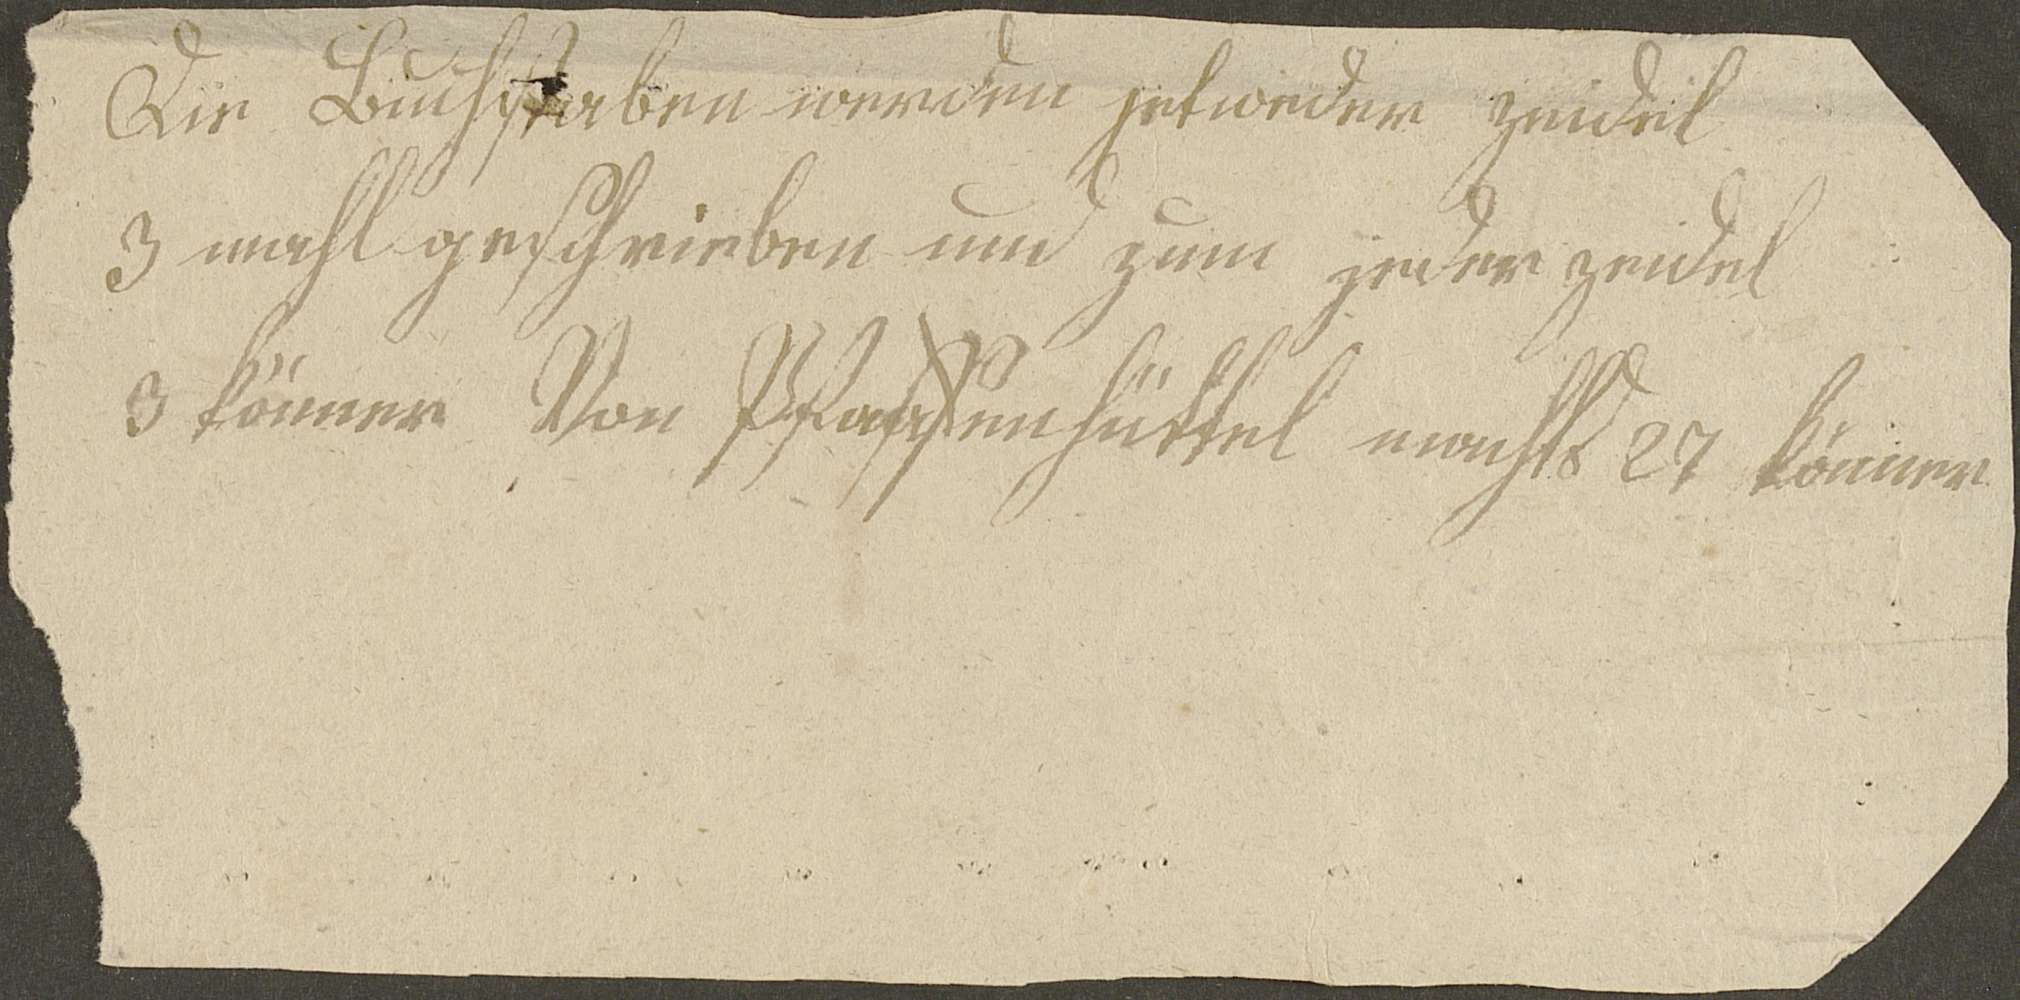 Die Buchstaben werden jetweder zeidel
3 mahl geschrieben und zum jeder zeidel
3 könner Von Pfaffenhüttel machts 27 könner